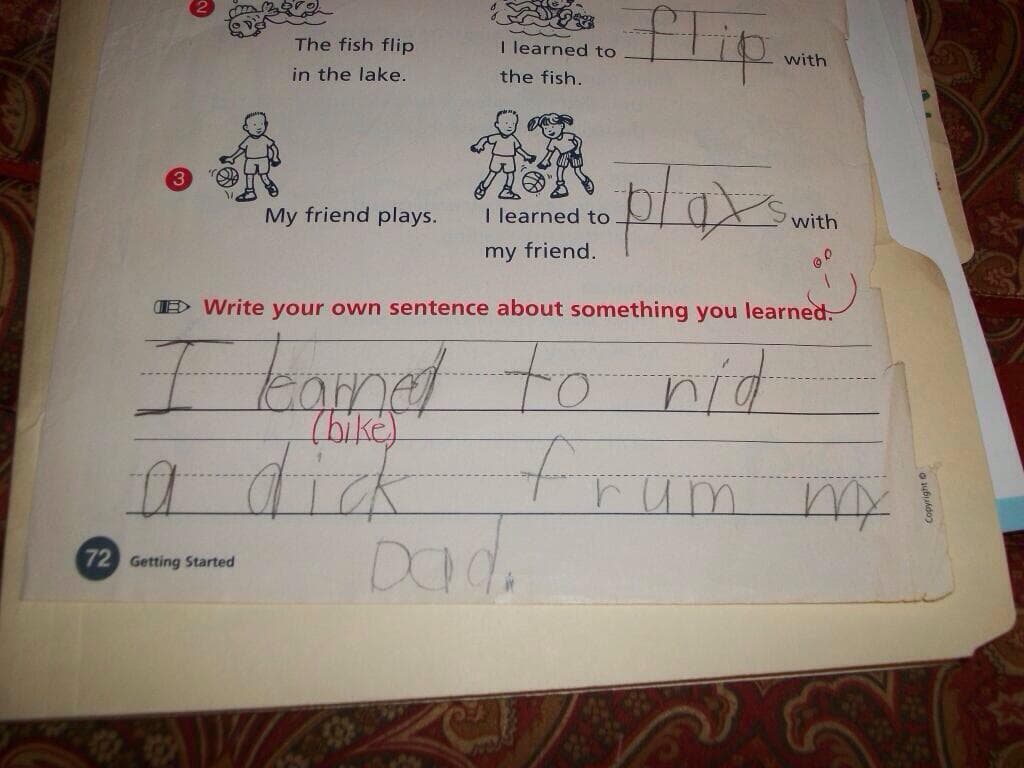 2
The fish flip I learned to flip with
in the lake. the fish.
3
My friend plays. I learned to plays with
my friend.
Write your own sentence about something you learned.
I learned to rid
(bike)
a dick frum my
Dad.
72 Getting Started
Copyright ©